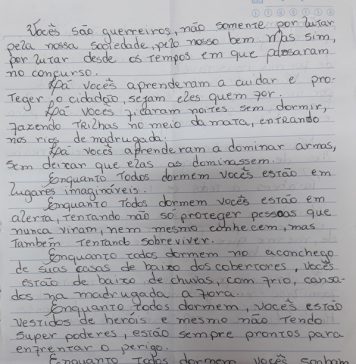 Vocês são guerreiros, não somente por lutar
pela nossa sociedade, pelo nosso bem. Mas sim,
por lutar desde os tempos em que passaram
no concurso.
Foi vocês aprenderam a cuidar e pro-
teger o cidadão, sejam eles quem for.
Foi vocês ficaram noites sem dormir,
fazendo trilhas no meio da mata, entrando
nos rios de madrugada.
Foi vocês aprenderam a dominar armas,
sem deixar que elas as dominassem.
Enquanto todos dormem vocês estão em
lugares imagináveis.
Enquanto todos dormem vocês estão em
alerta, tentando não só proteger pessoas que
nunca viram, nem mesmo conhecem, mas
também tentando sobreviver.
Enquanto todos dormem no aconchego
de suas casas de baixo dos cobertores, vocês
estão de baixo de chuvas, com frio, cansa-
dos na madrugada a fora.
Enquanto todos dormem, vocês estão
vestidos de heróis e mesmo não tendo
super poderes, estão sempre prontos para
enfrentar o perigo.
Enquanto todos dormem vocês sonham